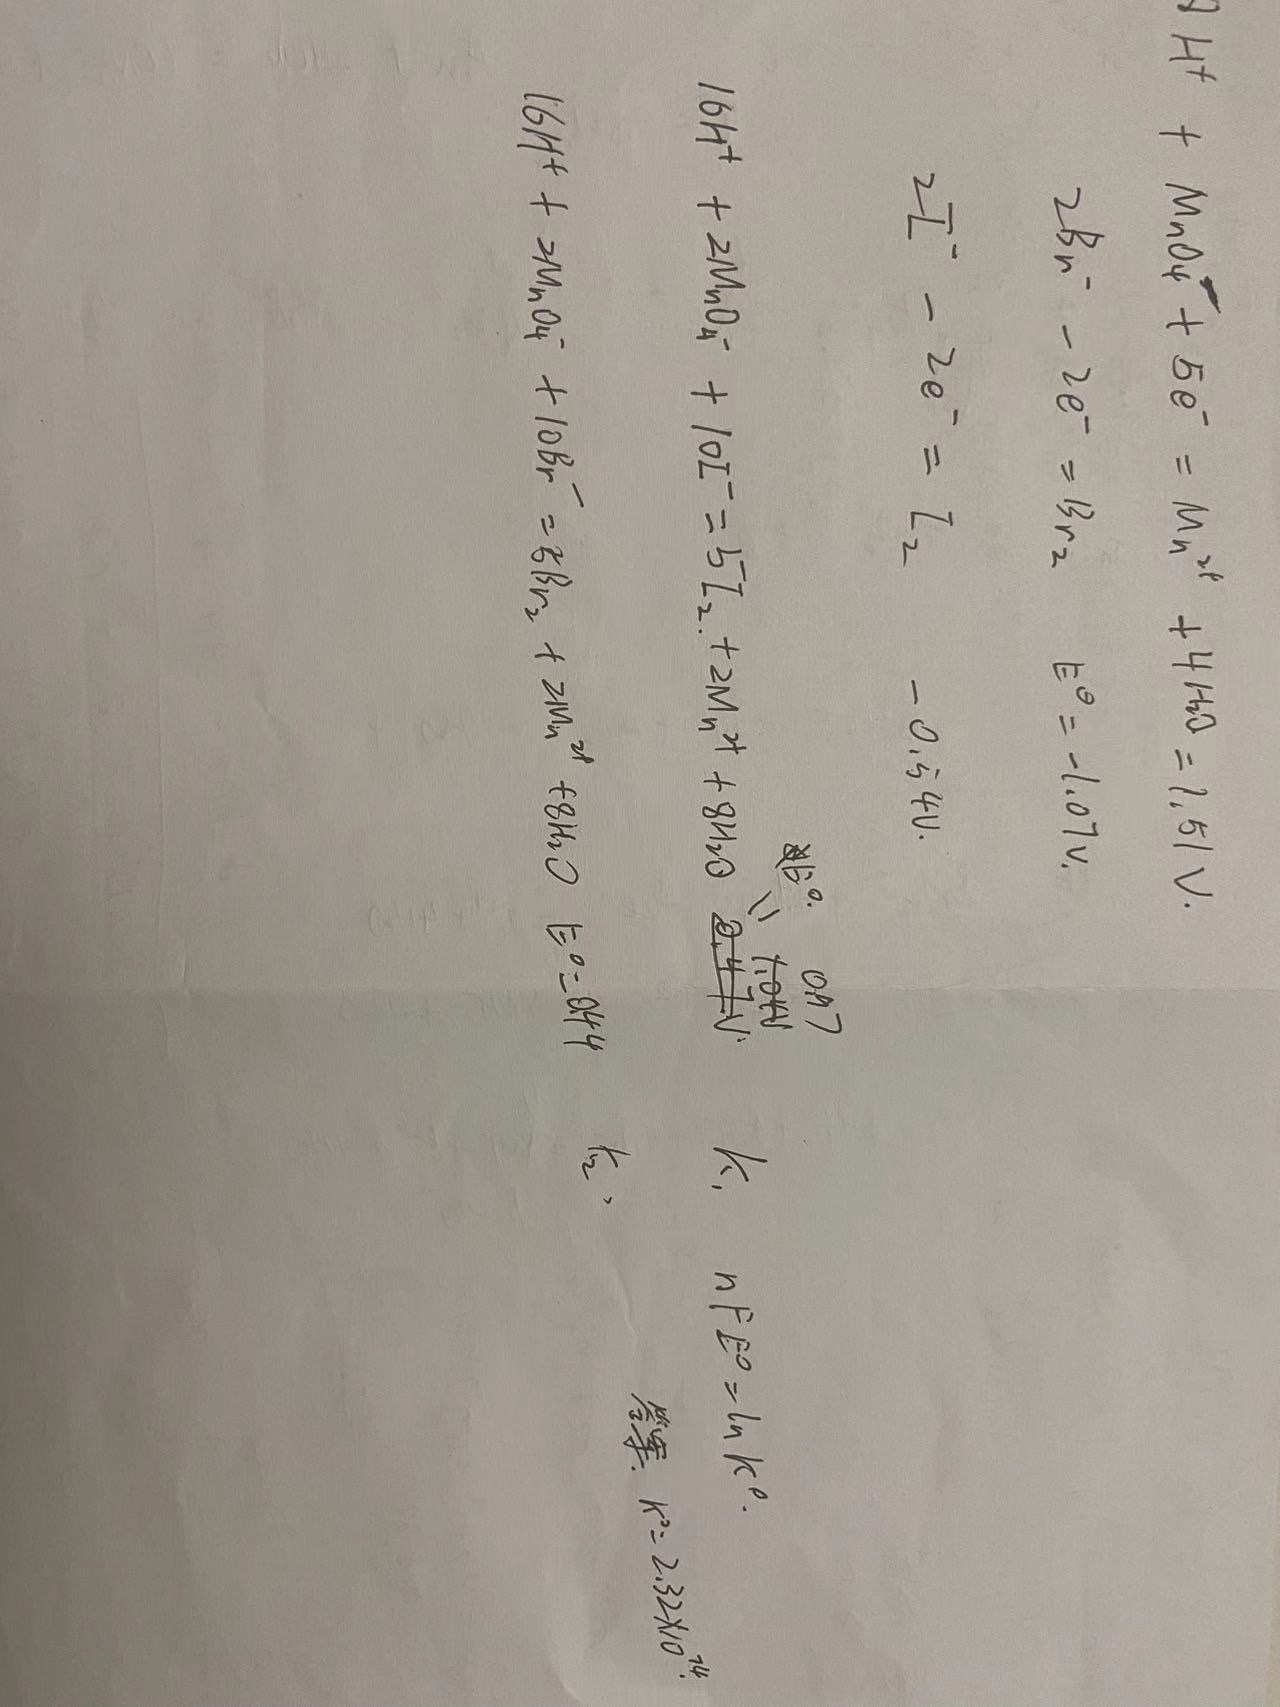 H⁺ + MnO₄⁻ + 5e⁻ = Mn²⁺ + 4H₂O = 1.51V.
2Br⁻ - 2e⁻ = Br₂ E⁰ = -1.07V.
2I⁻ - 2e⁻ = I₂ -0.54V.
E⁰. 0.97
16H⁺ + 2MnO₄⁻ + 10I⁻ = 5I₂. + 2Mn²⁺ + 8H₂O K₁ nFE⁰ = lnK⁰.
16H⁺ + 2MnO₄⁻ + 10Br⁻ = 5Br₂ + 2Mn²⁺ + 8H₂O E⁰ = 0.44 K₂,
答案. K⁰ = 2.32×10⁷⁴.